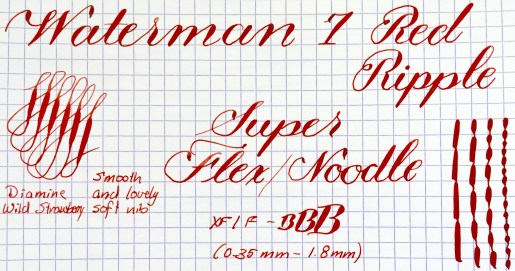 Waterman 7 Red
Ripple
Super
Flex/Noodle
Smooth
Diamine and lovely
Wild Strawberry soft nib
XF/F - BBB
(0.35 mm - 1.8 mm)